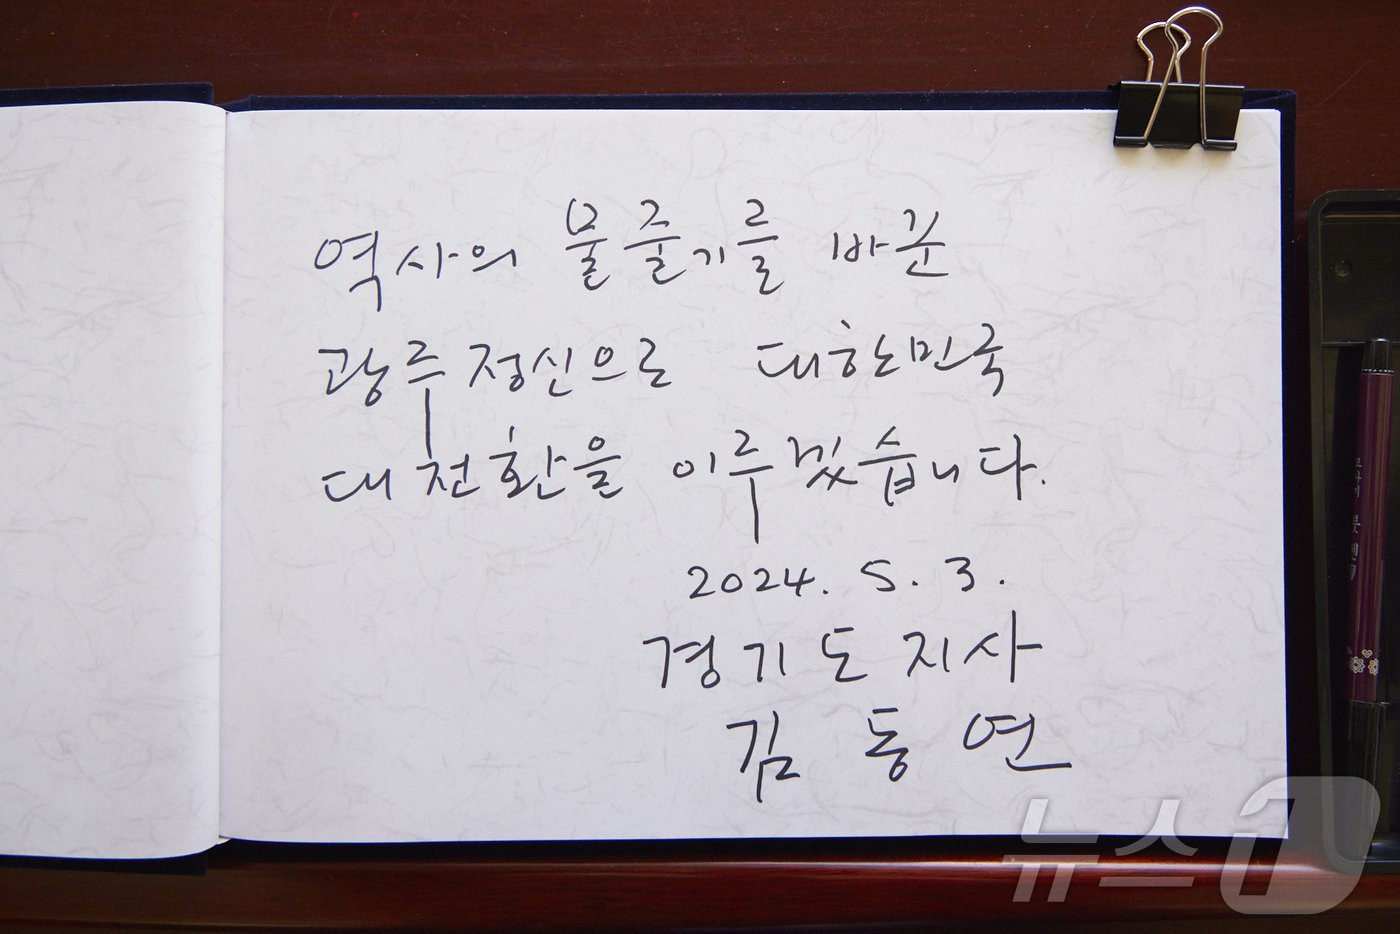 역사의 물줄기를 바꾼
광주정신으로 대한민국
대전환을 이루겠습니다.
2024. 5. 3.
경기도지사
김동연
뉴스1